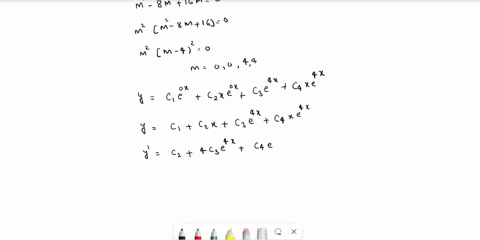 m² [m² - 8m + 16] = 0
m² [m - 4]² = 0
m = 0, 0, 4, 4
y = c₁e⁰ˣ + c₂xe⁰ˣ + c₃e⁴ˣ + c₄xe⁴ˣ
y = c₁ + c₂x + c₃e⁴ˣ + c₄xe⁴ˣ
y' = c₂ + 4c₃e⁴ˣ + c₄e